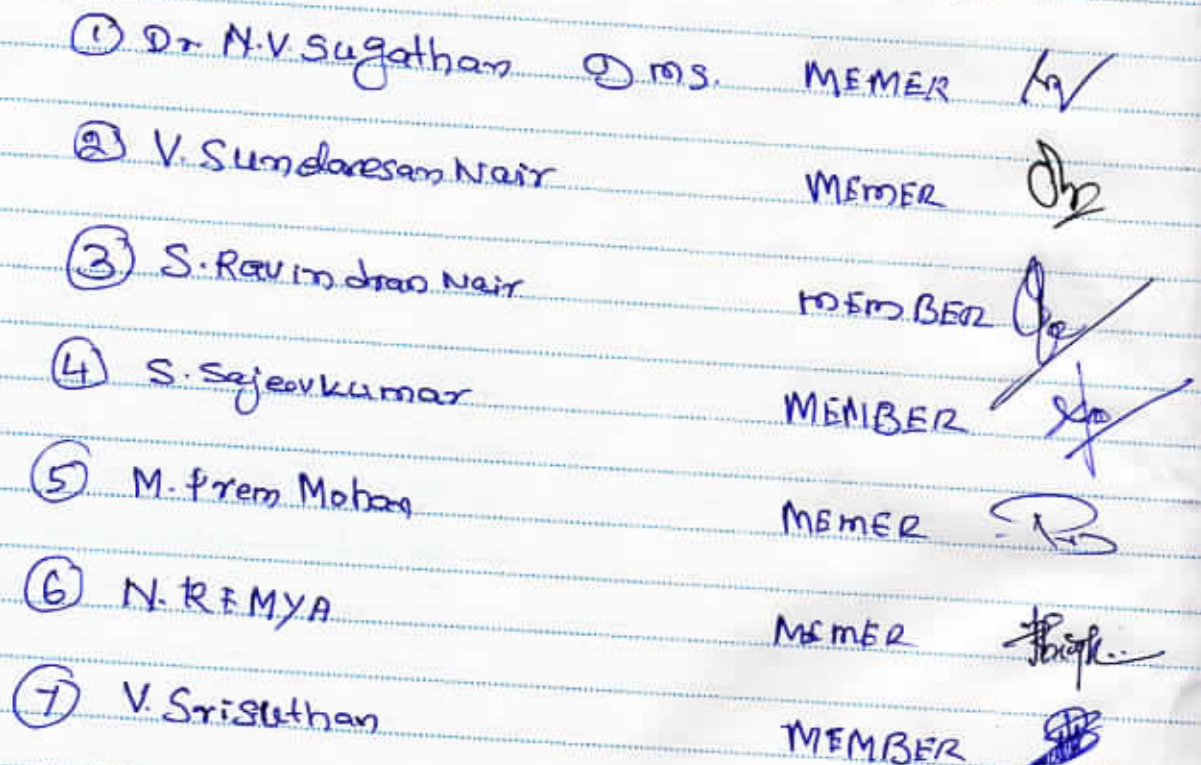 ① Dr N.V Sugathan MEMER
② V. Sundaresan Nair MEMER
③ S. Ravindran Nair MEMBER
④ S. Sajeevkumar MEMBER
⑤ M. Prem Mohan MEMER
⑥ N. REMYA MEMER
⑦ V. Srisuthan MEMBER